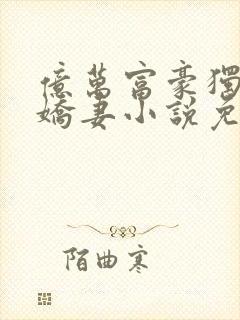 億萬富豪獨
嬌妻小說免
陌曲寒